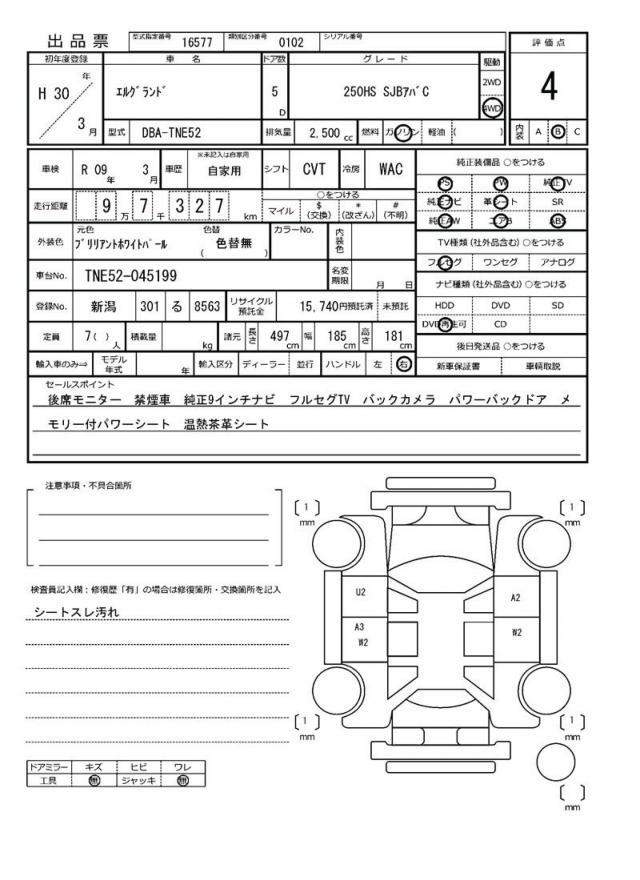 出品票 型式指定番号 16577 類別区分番号 0102 シリアル番号
初年度登録 車 名 ドア数 グレード 駆動 評価点
H 30 年 3 月 ｴﾙｸﾞﾗﾝﾄﾞ 5 D 250HS SJBｱﾊﾞC 2WD 4WD 4
型式 DBA-TNE52 排気量 2,500 cc 燃料 ガソリン 軽油 ( ) 内装 A B C
車検 R 09 年 3 月 車歴 ※未記入は自家用 自家用 シフト CVT 冷房 WAC
走行距離 9 万 7 千 3 2 7 km ○をつける マイル $ (交換) * (改ざん) # (不明)
外装色 元色 ﾌﾞﾘﾘｱﾝﾄﾎﾜｲﾄﾊﾟｰﾙ 色替 ( 色替無 ) カラーNo. 内装色
車台No. TNE52-045199 名変期限 月 日
登録No. 新潟 301 る 8563 リサイクル預託金 15,740円預託済 未預託
定員 7( ) 人 積載量 kg 諸元 長さ 497 cm 幅 185 cm 高さ 181 cm
輸入車のみ⇒ モデル年式 年 輸入区分 ディーラー 並行 ハンドル 左 右
純正装備品 ○をつける
PS PW 純正TV
純正ナビ 革シート SR
純正AW エアB ABS
TV種類 (社外品含む) ○をつける
フルセグ ワンセグ アナログ
ナビ種類 (社外品含む) ○をつける
HDD DVD SD
DVD再生可 CD
後日発送品 ○をつける
新車保証書 車輌取説
セールスポイント
後席モニター 禁煙車 純正9インチナビ フルセグTV バックカメラ パワーバックドア メ
モリー付パワーシート 温熱茶革シート
注意事項・不具合箇所
検査員記入欄：修復歴「有」の場合は修復箇所・交換箇所を記入
シートスレ汚れ
ドアミラー キズ ヒビ ワレ
工具 無 ジャッキ 無
( 1 ) mm ( 1 ) mm
U2 A2
A3 W2 W2
( 1 ) mm ( 1 ) mm
( ) mm